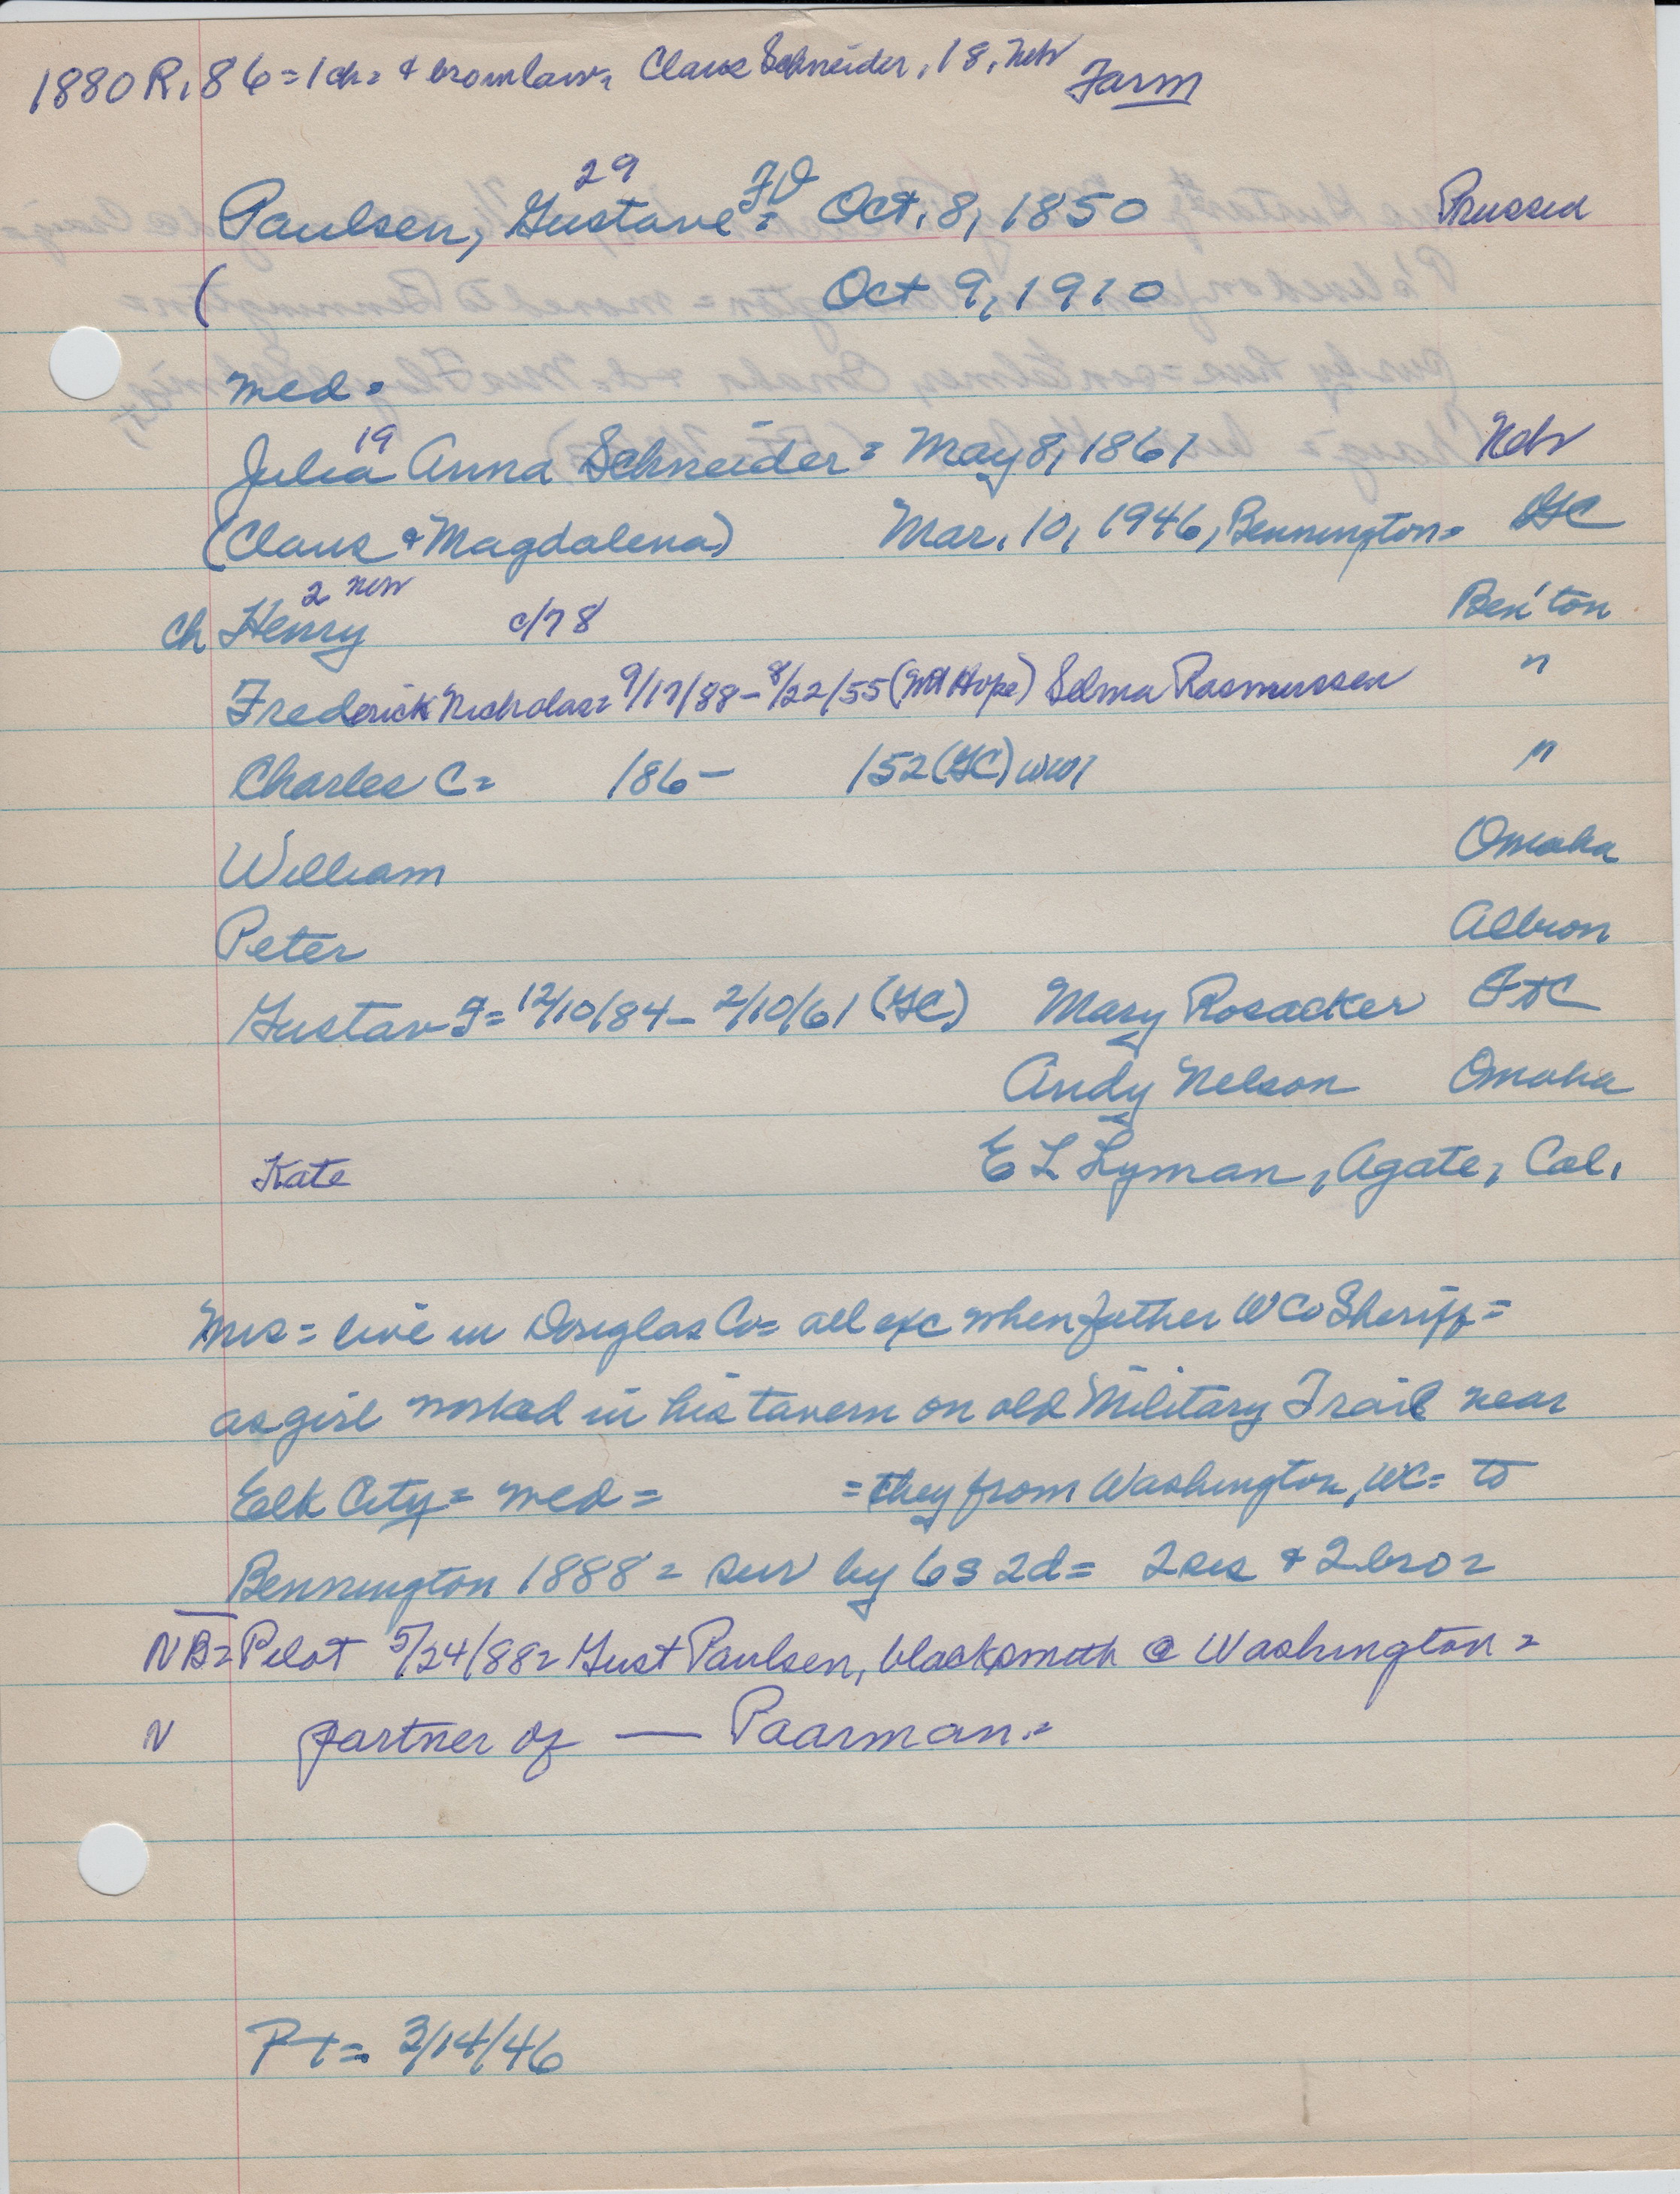 1880 R, 86 = 1 ch = & broinlaw, Claus Schneider, 18, Neb
Farm
29
Paulsen, Gustave = Oct. 8, 1850 Prussia
( Oct 9, 1910
med =
19
Julia Anna Schneider = May 8, 1861 Neb
(Claus & Magdalena) Mar. 10, 1946, Bennington = GC
2 Neb
ch Henry c/78 Ben'ton
Frederick Nicholas = 9/17/88 - 8/22/55 (Mt Hope) Selma Rasmussen "
Charles C = /86 - /52 (GC) WW1 "
William Omaha
Peter Albion
Gustav F = 12/10/84 - 2/10/61 (GC) Mary Rosacker FtC
Andy Nelson Omaha
Kate E L Lyman, Agate, Cal.
Mrs = live in Douglas Co = all exc when father W Co Sheriff =
as girl worked in his tavern on old Military Trail near
Elk City = med = = they from Washington, WC = to
Bennington 1888 = sur by 6s 2d = 2 sis & 2 bro =
NB = Pilot 5/24/88 = Gust Paulsen, blacksmith @ Washington =
N partner of — Paarman =
PT = 3/14/46